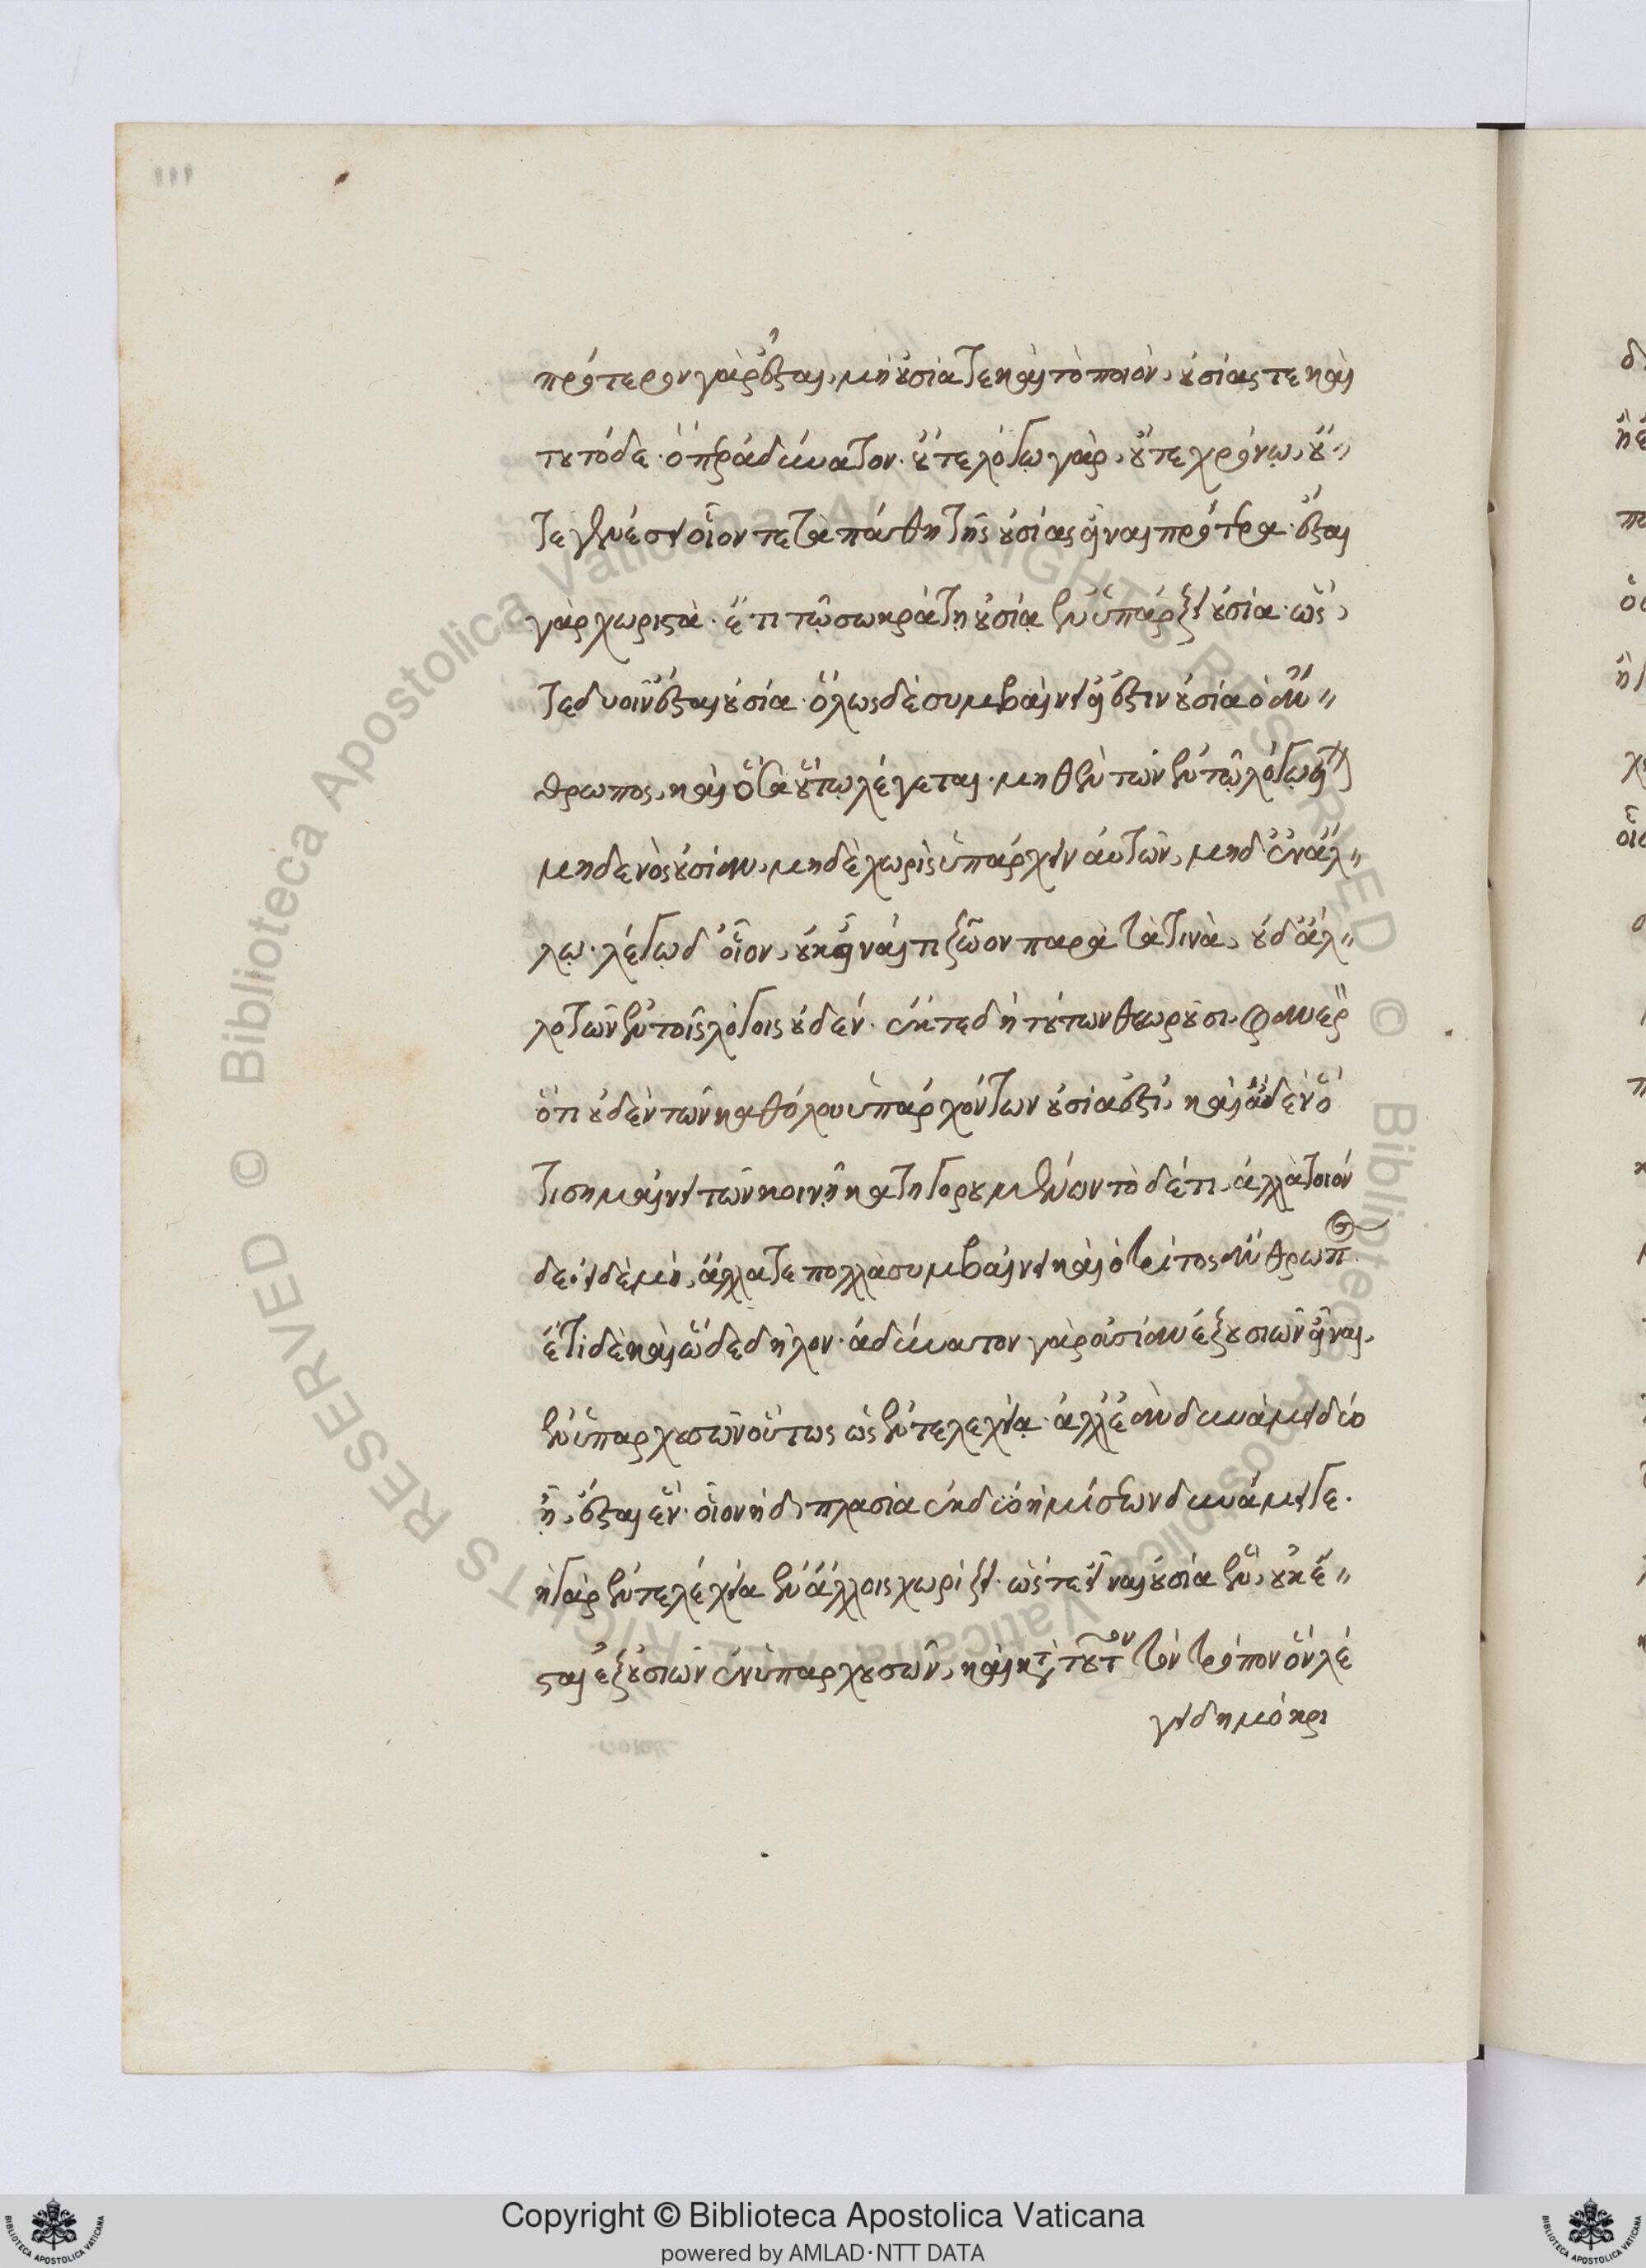 πρότερον γὰρ ἔσται, μὴ οὐσία τε καὶ τὸ ποιὸν, οὐσίας τε καὶ
τοῦ τόδε. ὅπερ ἀδύνατον. οὔτε λόγῳ γὰρ, οὔτε χρόνῳ, οὔ
τε γενέσει οἷόν τε τὰ πάθη τῆς οὐσίας εἶναι πρότερα. ἔσται
γὰρ χωριστὰ. ἔτι τῷ σωκράτῃ οὐσίᾳ ἐνυπάρξει οὐσία. ὥς
τε δυοῖν ἔσται οὐσία. ὅλως δὲ συμβαίνει εἰ ἔστιν οὐσία ὁ ἄν
θρωπος, καὶ ὅσα οὕτω λέγεται. μηθὲν τῶν ἐν τῷ λόγῳ εἶναι
μηδενὸς οὐσίαν, μηδὲ χωρὶς ὑπάρχειν αὐτῶν, μηδ' ἐν ἄλ
λῳ. λέγω δ' οἷον, οὐκ εἶναί τι ζῷον παρὰ τὰ τινὰ, οὐδ' ἄλ
λο τῶν ἐν τοῖς λόγοις οὐδέν. ἔκ τε δὴ τούτων θεωροῦσι, φανερὸν
ὅτι οὐδὲν τῶν καθόλου ὑπαρχόντων οὐσία ἐστί, καὶ οὐδὲν ὅ
τι σημαίνει τῶν κοινῇ κατηγορουμένων τὸ δέ τι, ἀλλὰ τοιόν
δε. εἰ δὲ μὴ, ἄλλα τε πολλὰ συμβαίνει καὶ ὁ τρίτος ἄνθρωπος
ἔτι δὲ καὶ ὧδε δῆλον. ἀδύνατον γὰρ οὐσίαν ἐξ οὐσιῶν εἶναι,
ἐνυπαρχουσῶν οὕτως ὡς ἐντελεχείᾳ. ἀλλ' ἐὰν δυνάμει δύο
ᾖ, ἔσται ἕν. οἷον ἡ διπλασία ἐκ δύο ἡμίσεων δυνάμει γε.
ἡ γὰρ ἐντελέχεια ἐν ἄλλοις χωρίζει. ὥστε εἶναι οὐσία ἓν, οὐκ ἔ
σται ἐξ οὐσιῶν ἐνυπαρχουσῶν, καὶ κατὰ τοῦτον τὸν τρόπον ὃν λέ
γει δημόκρι
Copyright © Biblioteca Apostolica Vaticana
powered by AMLAD·NTT DATA